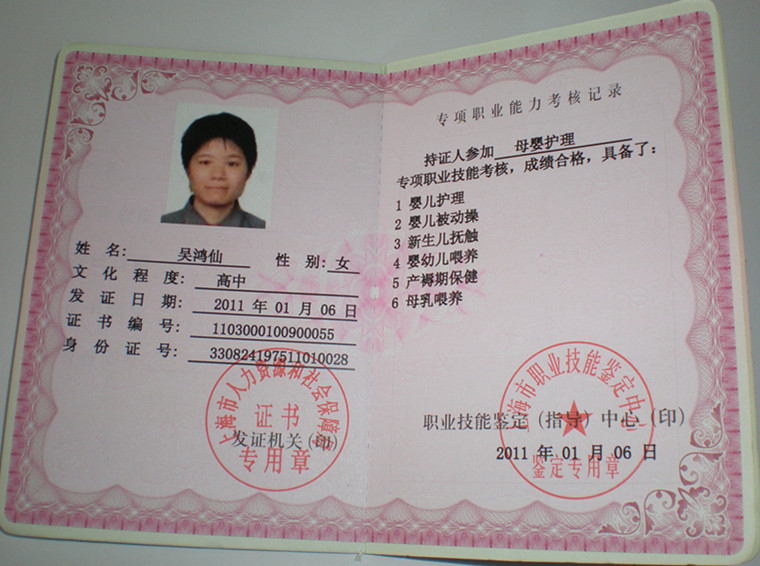 姓 名: 吴鸿仙 性 别: 女
文 化 程 度: 高中
发 证 日 期: 2011 年 01 月 06 日
证 书 编 号: 1103000100900055
身 份 证 号: 330824197511010028
上海市人力资源和社会保障局
证书
发证机关(印)
专用章
专项职业能力考核记录
持证人参加 母婴护理
专项职业技能考核，成绩合格，具备了：
1 婴儿护理
2 婴儿被动操
3 新生儿抚触
4 婴幼儿喂养
5 产褥期保健
6 母乳喂养
上海市职业技能鉴定中心
职业技能鉴定（指导）中心（印）
2011 年 01 月 06 日
鉴定专用章